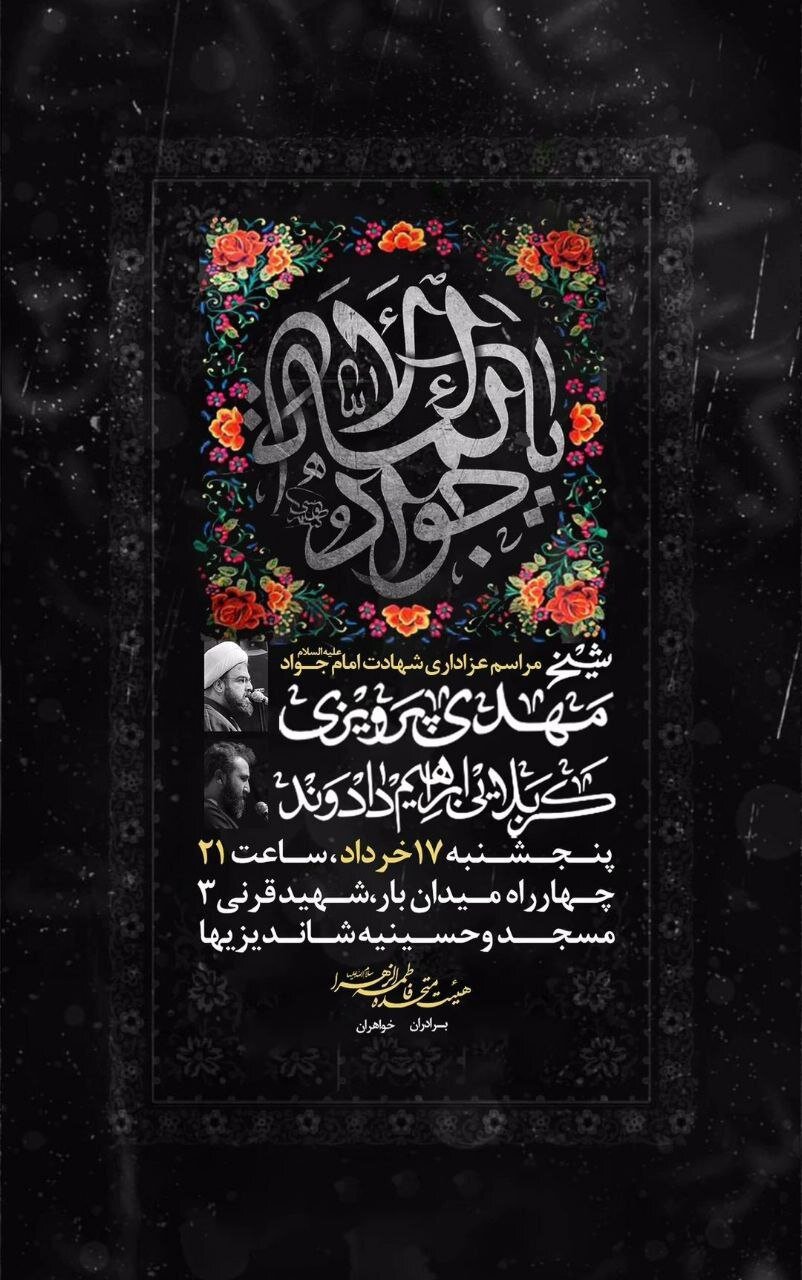 یا جواد الائمه
مراسم عزاداری شهادت امام جواد علیه‌السلام
شیخ
مهدی پرویزی
کربلایی ابراهیم دادوند
پنجشنبه ۱۷ خرداد، ساعت ۲۱
چهارراه میدان بار، شهید قرنی ۳
مسجد و حسینیه شاندیزیها
هیئت متحده فاطمه الزهرا سلام‌الله‌علیها
برادران خواهران